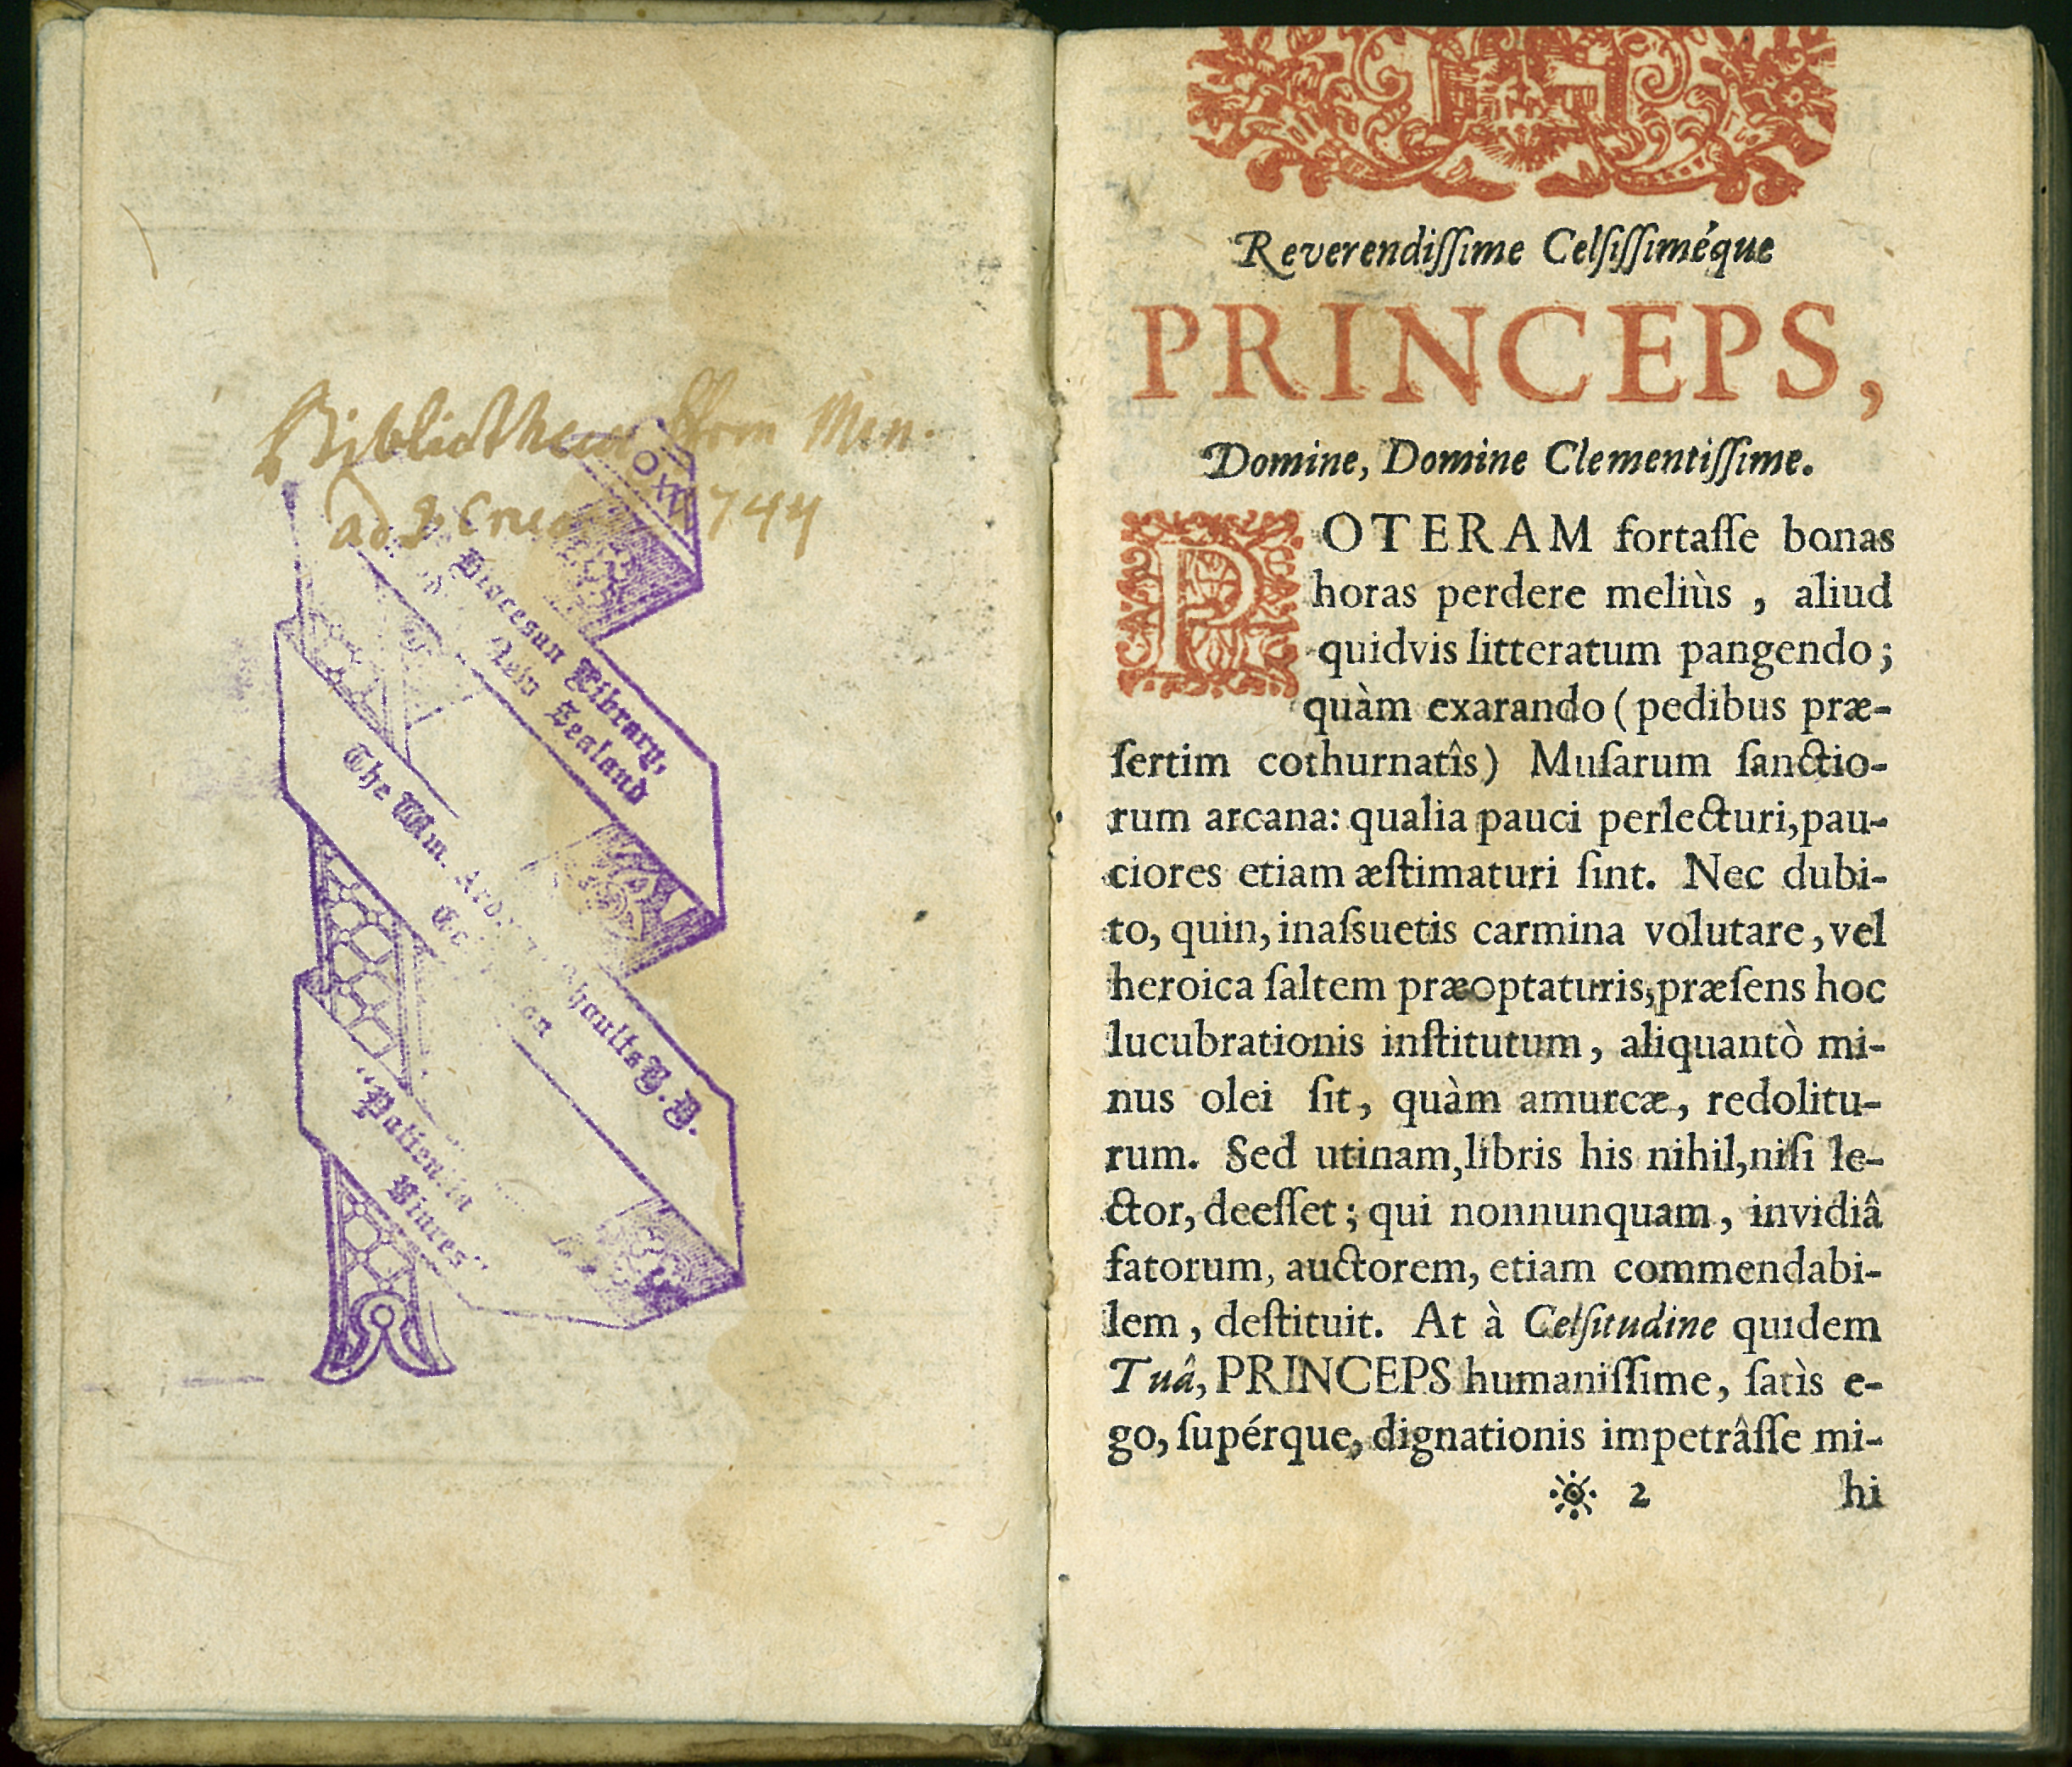 Bibliotheca Frm Min.
ad S Cruc 1744
OXV
Diocesan Library,
New Zealand
The Wm. Arderne Shoults B.D.
Collection
"Patientia
Vinces"
Reverendiſſime Celſiſſiméque
PRINCEPS,
Domine, Domine Clementiſſime.
POTERAM fortaſſe bonas
horas perdere meliùs , aliud
quidvis litteratum pangendo ;
quàm exarando ( pedibus præ-
ſertim cothurnatîs) Muſarum ſanctio-
rum arcana: qualia pauci perlecturi, pau-
ciores etiam æſtimaturi ſint. Nec dubi-
to, quin, inaſsuetis carmina volutare, vel
heroica ſaltem præoptaturis, præſens hoc
lucubrationis inſtitutum, aliquantò mi-
nus olei ſit, quàm amurcæ, redolitu-
rum. Sed utinam, libris his nihil, niſi le-
ctor, deeſſet ; qui nonnunquam, invidiâ
fatorum, auctorem, etiam commendabi-
lem, deſtituit. At à Celſitudine quidem
Tuâ, PRINCEPS humaniſſime, ſatìs e-
go, ſupérque, dignationis impetrâſſe mi-
2 hi